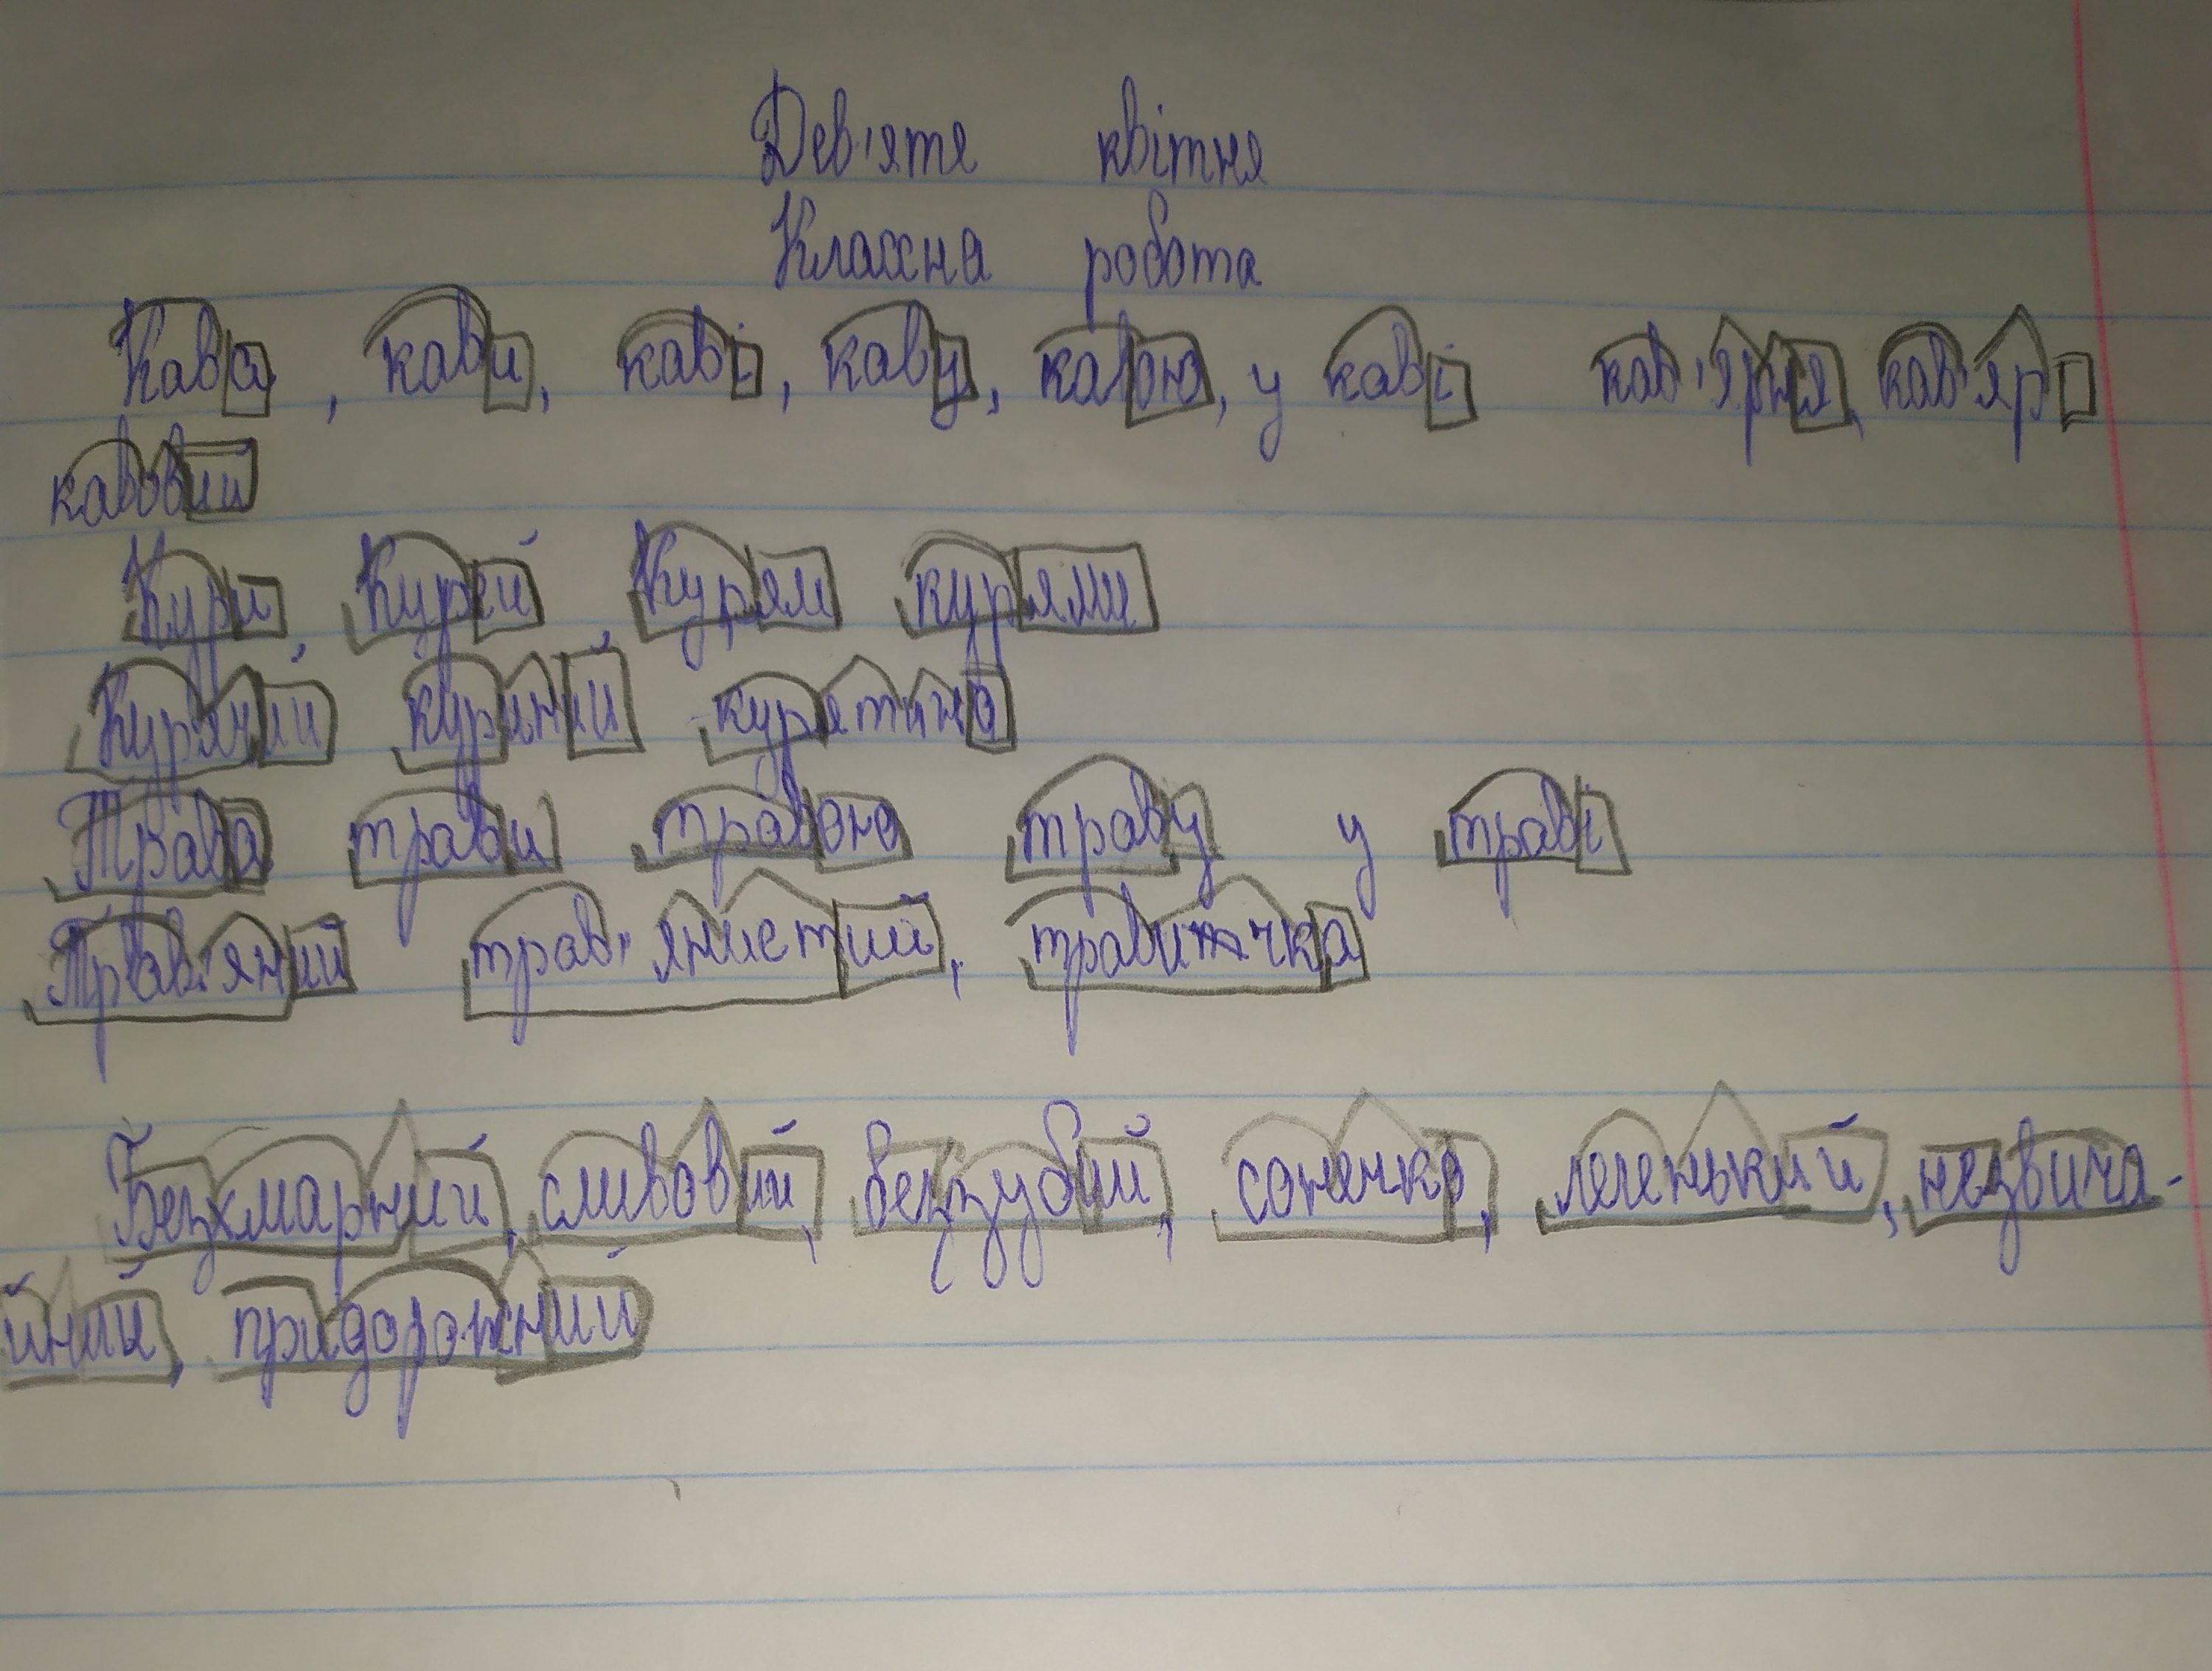 Дев'яте квітня
Классна робота
Кава, кави, каві, каву, кавою, у каві кав'ярня, кав'яр
кавовий
Кури, Курей, Курям курями
Курячий куриний курятина
Трава трави травою траву у траві
Трав'яний трав'янистий, травичка
Безхмарний, сливовий, беззубий, сонечко, легенький, незвича-
йний, придорожний